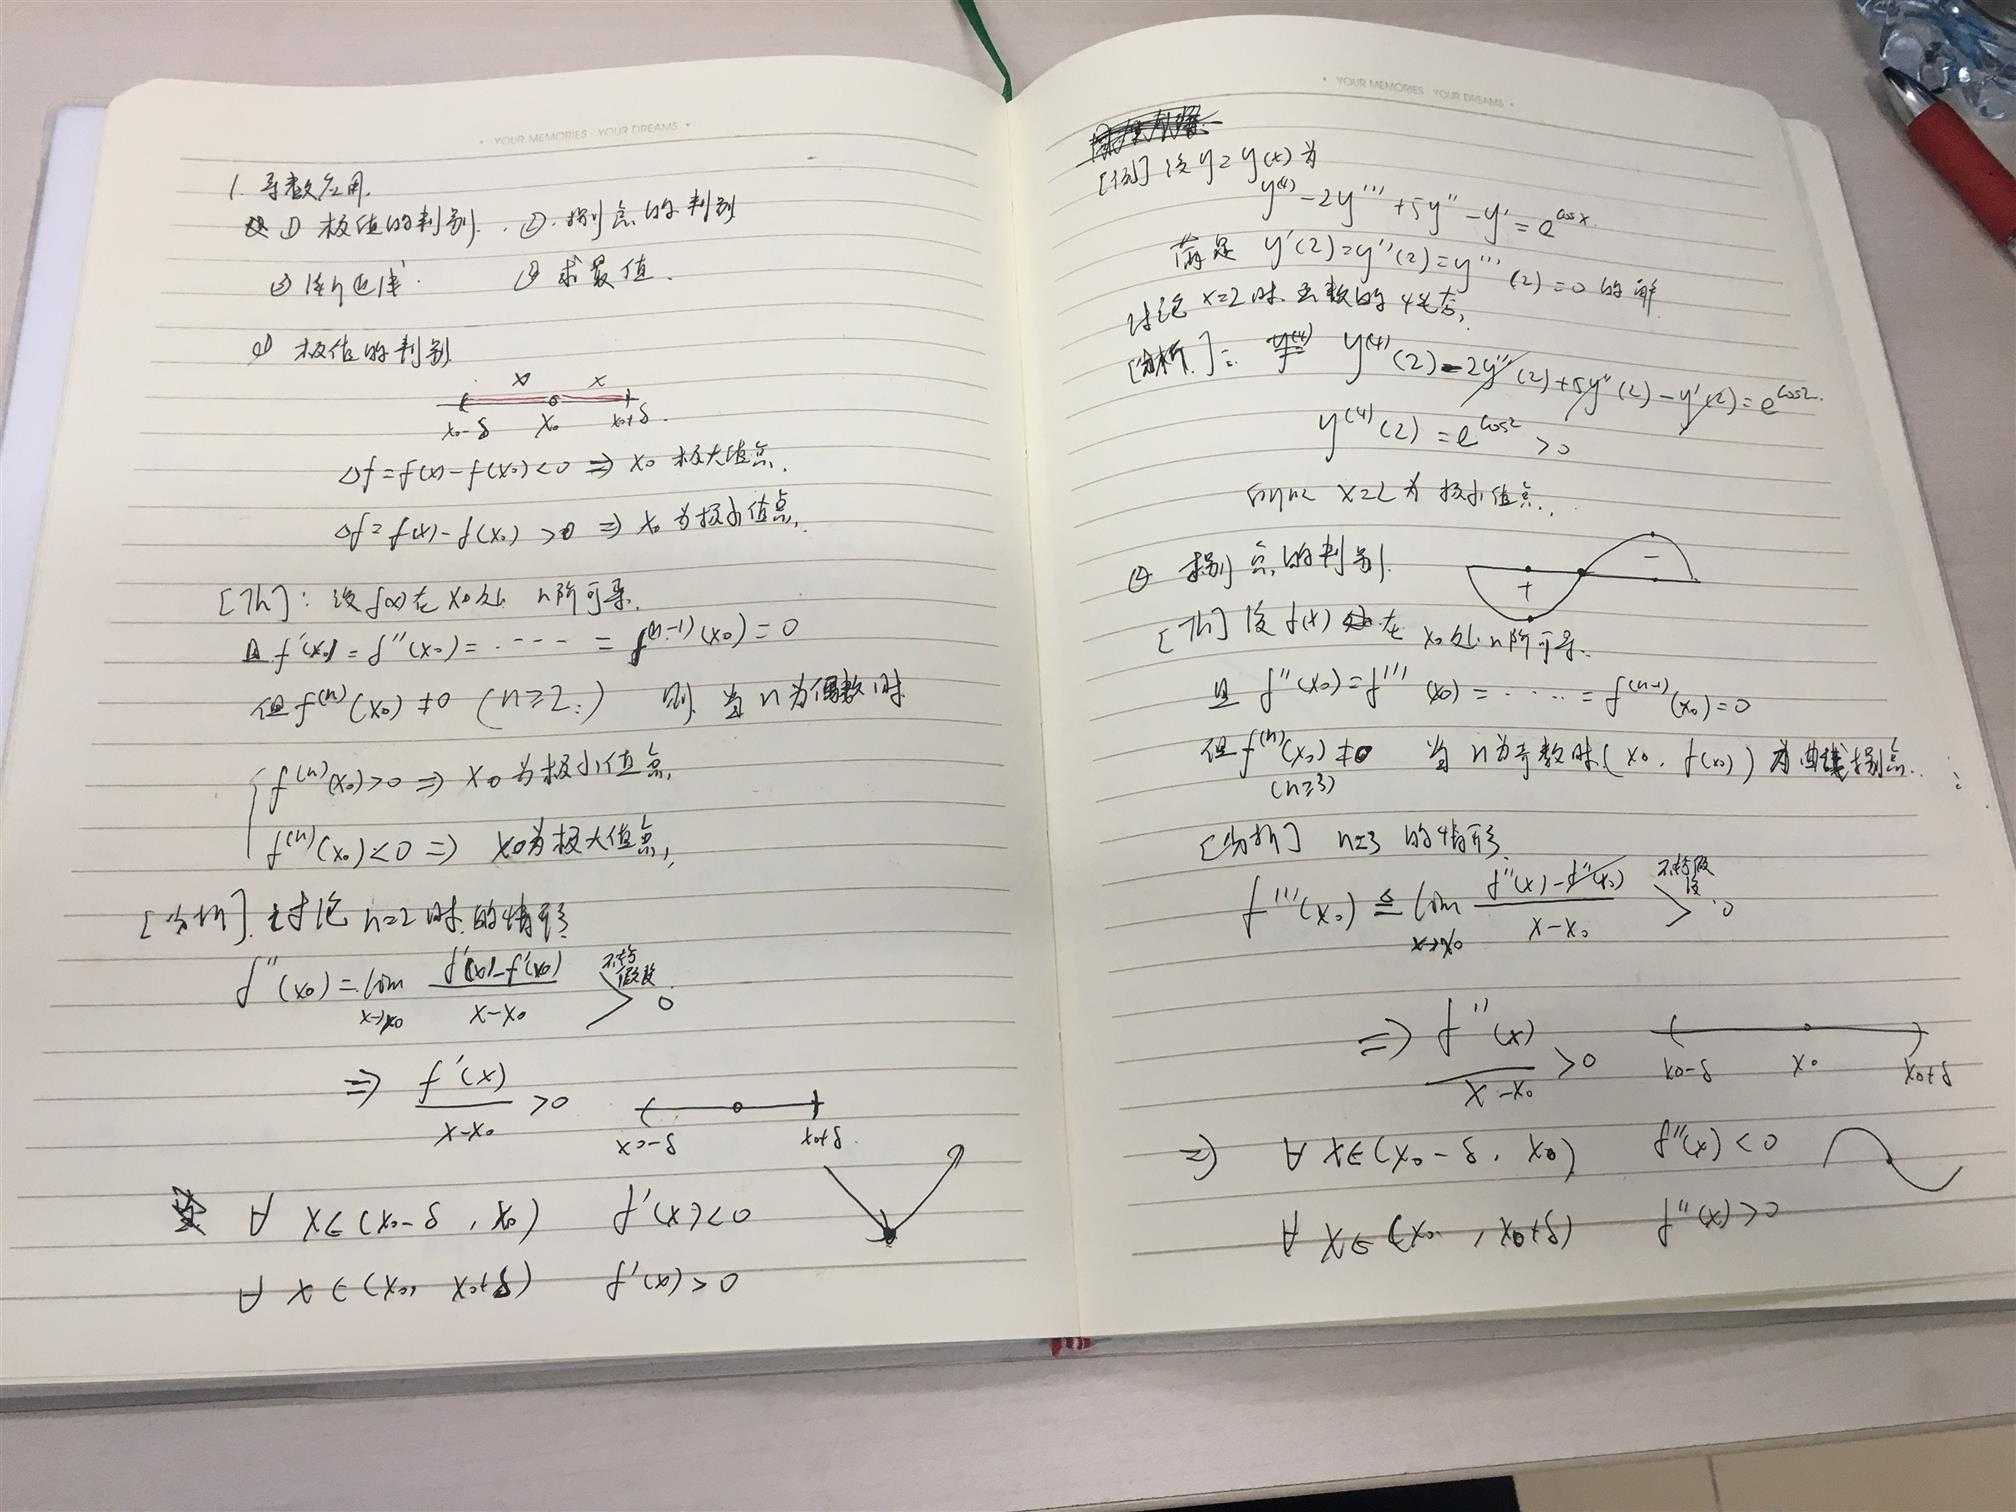 YOUR MEMORIES · YOUR DREAMS
1. 导数应用.
① 极值的判别. ② 拐点的判别
③ 渐近线. ④ 求最值.
① 极值的判别
x x
x₀-δ x₀ x₀+δ.
Δf=f(x)-f(x₀)<0 ⇒ x₀ 极大值点.
Δf=f(x)-f(x₀)>0 ⇒ x₀ 为极小值点.
[Th]: 设 f(x) 在 x₀ 处 n阶可导.
且 f'(x₀)=f''(x₀)=·····=f⁽ⁿ⁻¹⁾(x₀)=0
但 f⁽ⁿ⁾(x₀)≠0 (n≥2.) 则 当 n 为偶数时
f⁽ⁿ⁾(x₀)>0 ⇒ x₀ 为极小值点,
f⁽ⁿ⁾(x₀)<0 ⇒ x₀为极大值点,
[分析]. 讨论 n=2 时 的情形
f''(x₀)=lim x→x₀ (f'(x)-f'(x₀))/(x-x₀) 不妨假设 > 0
⇒ f'(x)/(x-x₀) >0
x₀-δ x₀+δ.
∀ x∈(x₀-δ, x₀) f'(x)<0
∀ x∈(x₀, x₀+δ) f'(x)>0
YOUR MEMORIES · YOUR DREAMS
[例] 设 y=y(x) 为
y⁽⁴⁾-2y'''+5y''-y'=e^cosx.
满足 y'(2)=y''(2)=y'''(2)=0 的解
讨论 x=2 时 函数的性态,
[分析]: y⁽⁴⁾(2)-2y'''(2)+5y''(2)-y'(2)=e^cos2.
y⁽⁴⁾(2)=e^cos2>0
x=2 为 极小值点.
② 拐点的判别.
+ -
[Th] 设 f(x) 在 x₀处 n阶可导.
且 f''(x₀)=f'''(x₀)=·····=f⁽ⁿ⁻¹⁾(x₀)=0
但 f⁽ⁿ⁾(x₀)≠0 当 n为奇数时 (x₀, f(x₀)) 为曲线拐点.
(n≥3)
[分析] n=3 的情形
f'''(x₀) ≜ lim x→x₀ (f''(x)-f''(x₀))/(x-x₀) 不妨假设 > 0
⇒ f''(x)/(x-x₀) >0
x₀-δ x₀ x₀+δ
⇒ ∀ x∈(x₀-δ, x₀) f''(x)<0
∀ x∈(x₀, x₀+δ) f''(x)>0